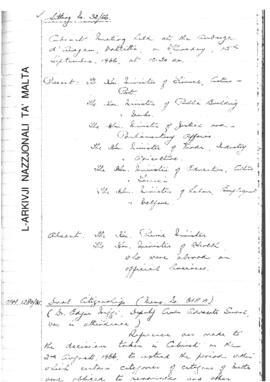 Sitting No. 38/66.
Cabinet Meeting held at the Auberge
d'Aragon, Valletta, on Thursday, 15th
September, 1966, at 10.30 am.
Present: The Hon. Minister of Finance, Customs
Port
The Hon. Minister of Public Building
& Works.
The Hon. Minister of Justice and
Parliamentary Affairs
The Hon. Minister of Trade, Industry
& Agriculture.
The Hon. Minister of Education, Culture
& Tourism
The Hon. Minister of Labour, Employment
& Welfare
Absent: The Hon. Prime Minister
The Hon. Minister of Health
who were abroad on
official business.
Dual Citizenship (Memo. No.
Deputy Crown Advocate General,
was in attendance)
Reference was made to
the decision taken in Cabinet on the
2nd August, 1966, to extend the period within
which certain categories of citizens of Malta
were obliged to renounce their other
L-ARKIVJI NAZZJONALI TA' MALTA